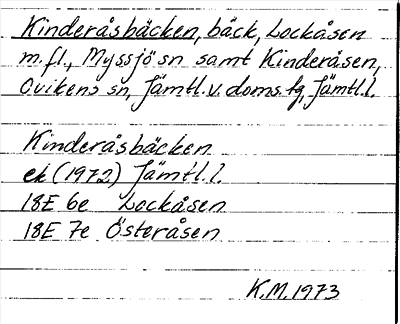 Kinderåsbäcken, bäck, Lockåsen
m.fl., Myssjö sn samt Kinderåsen,
Ovikens sn, Jämtl.v.doms.tg, Jämtl.l.
Kinderåsbäcken
ek (1972) Jämtl.l.
18E 6e Lockåsen
18E 7e Österåsen
K.M.1973